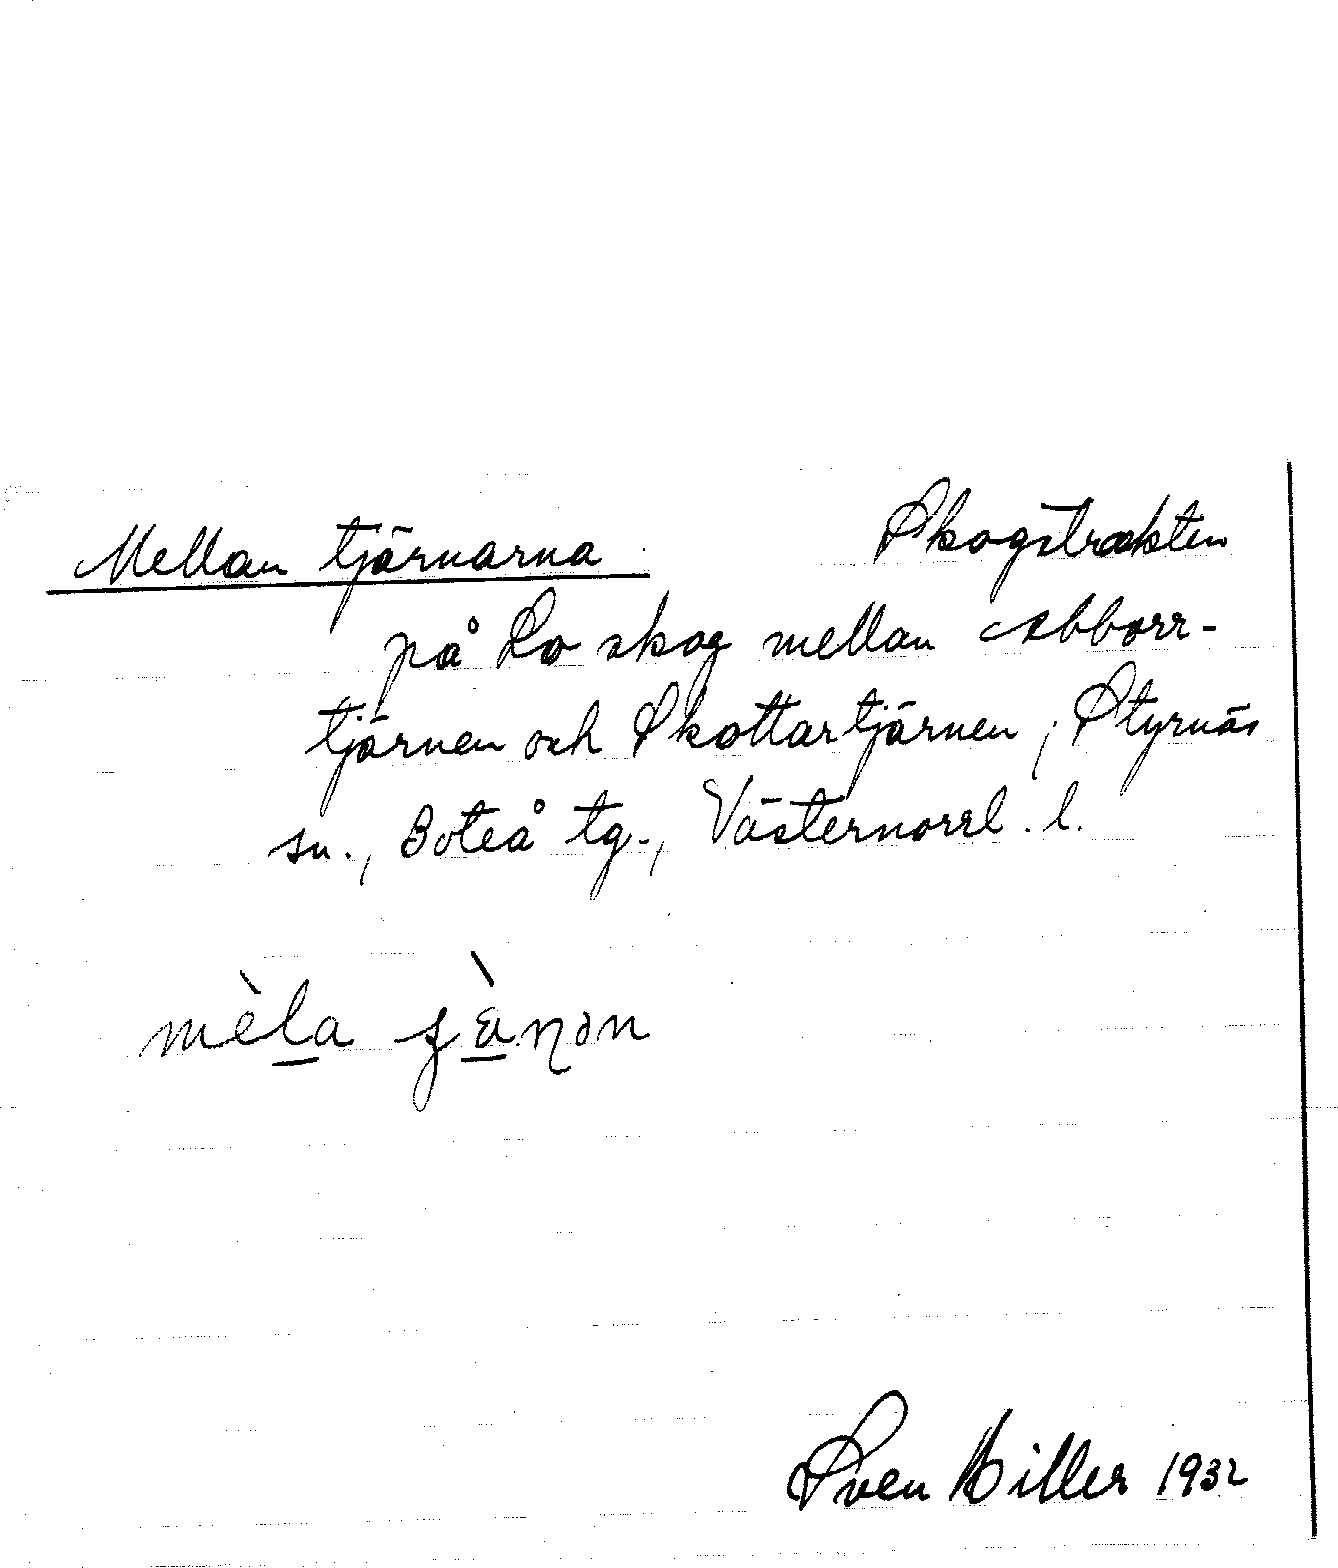 Mellan tjärnarna Skogstrakten
på Lo skog mellan Abborr-
tjärnen och Skottartjärnen, Styrnäs
sn., Boteå tg., Västernorrl. l.
mèla
Sven Hiller 1932